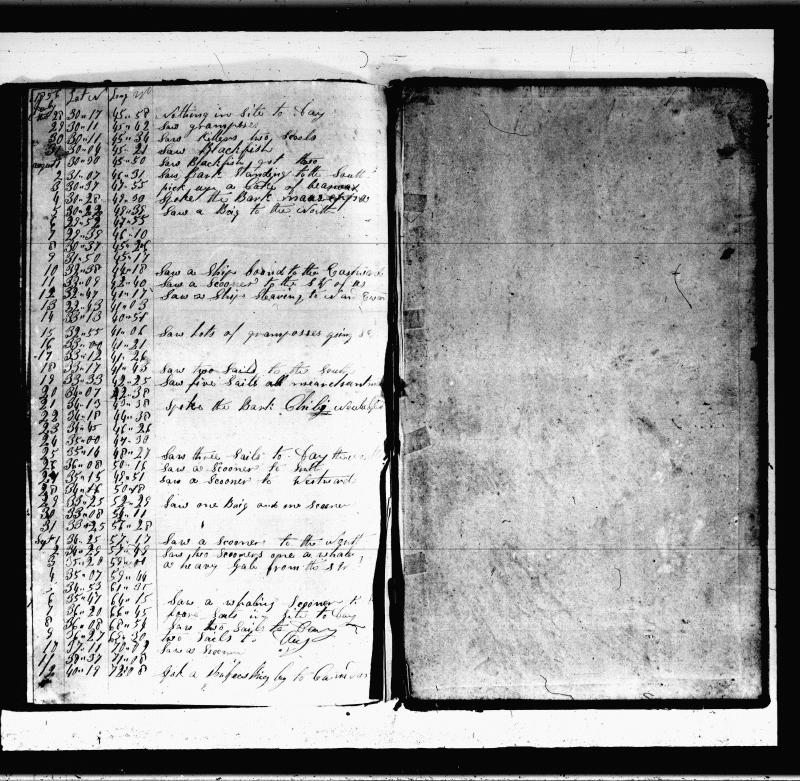 1856 Lat N Long W
28 30-17 45-58 Nothing in site to day
29 30-11 45-42 Saw grampuses
30 30-11 45-34 Saw Killers two Scools
31 30-04 45-21 Saw Blackfish
august 1 30-90 45-50 Saw Blackfish got two
2 31-07 46-31 Saw Bark Standing to the South
3 30-37 47-55 pick up a Cake of
4 30-28 49-30 Spoke the Bark
5 30-22 48-38 Saw a Brig to the North
6 29-52 47-55
7 29-39 46-10
8 30-37 45-26
9 31-50 45-17
10 32-38 44-18 Saw a Ship bound to the Eastward
11 33-09 42-40 Saw a Scooner to the SW of us
12 32-47 41-17 Saw a Ship Stearing to
13 32-43 41-03
14 33-13 40-51
15 32-55 41-06 Saw Lots of gramposses going
16 33-00 41-21
17 33-12 41-26
18 33-17 41-43 Saw two Sails to the South
19 33-33 42-25 Saw five Sails all
20 34-07 42-38
21 34-15 43-38 Spoke the Bark
22 34-18 44-38
23 34-45 46-26
24 35-00 47-30
25 35-14 48-27 Saw three Sails to day
26 36-08 50-16 Saw a Scooner to
27 35-15 48-51 saw a Scooner to Westward
28 34-46 50-48
29 33-25 52-29 Saw one Brig and one Scooner
30 33-08 54-11
31 33-25 56-28
Sept 1 34-25 57-17 Saw a Scooner to the North
2 34-25 57-45 Saw two Scooners one a whaler
3 35-20 59-00 a heavy Gale from the
4 35-07 59-44
5 34-53 61-35
6 35-47 64-15 Saw a whaling Scooner
7 36-20 66-45 Sails in Site to day
8 36-08 68-56 Saw two Sails to Day
9 36-27 68-30 two Sails to Day
10 37-11 70-09 Saw a Scooner
11 38-37 71-08
12 40-19 72-08 got a